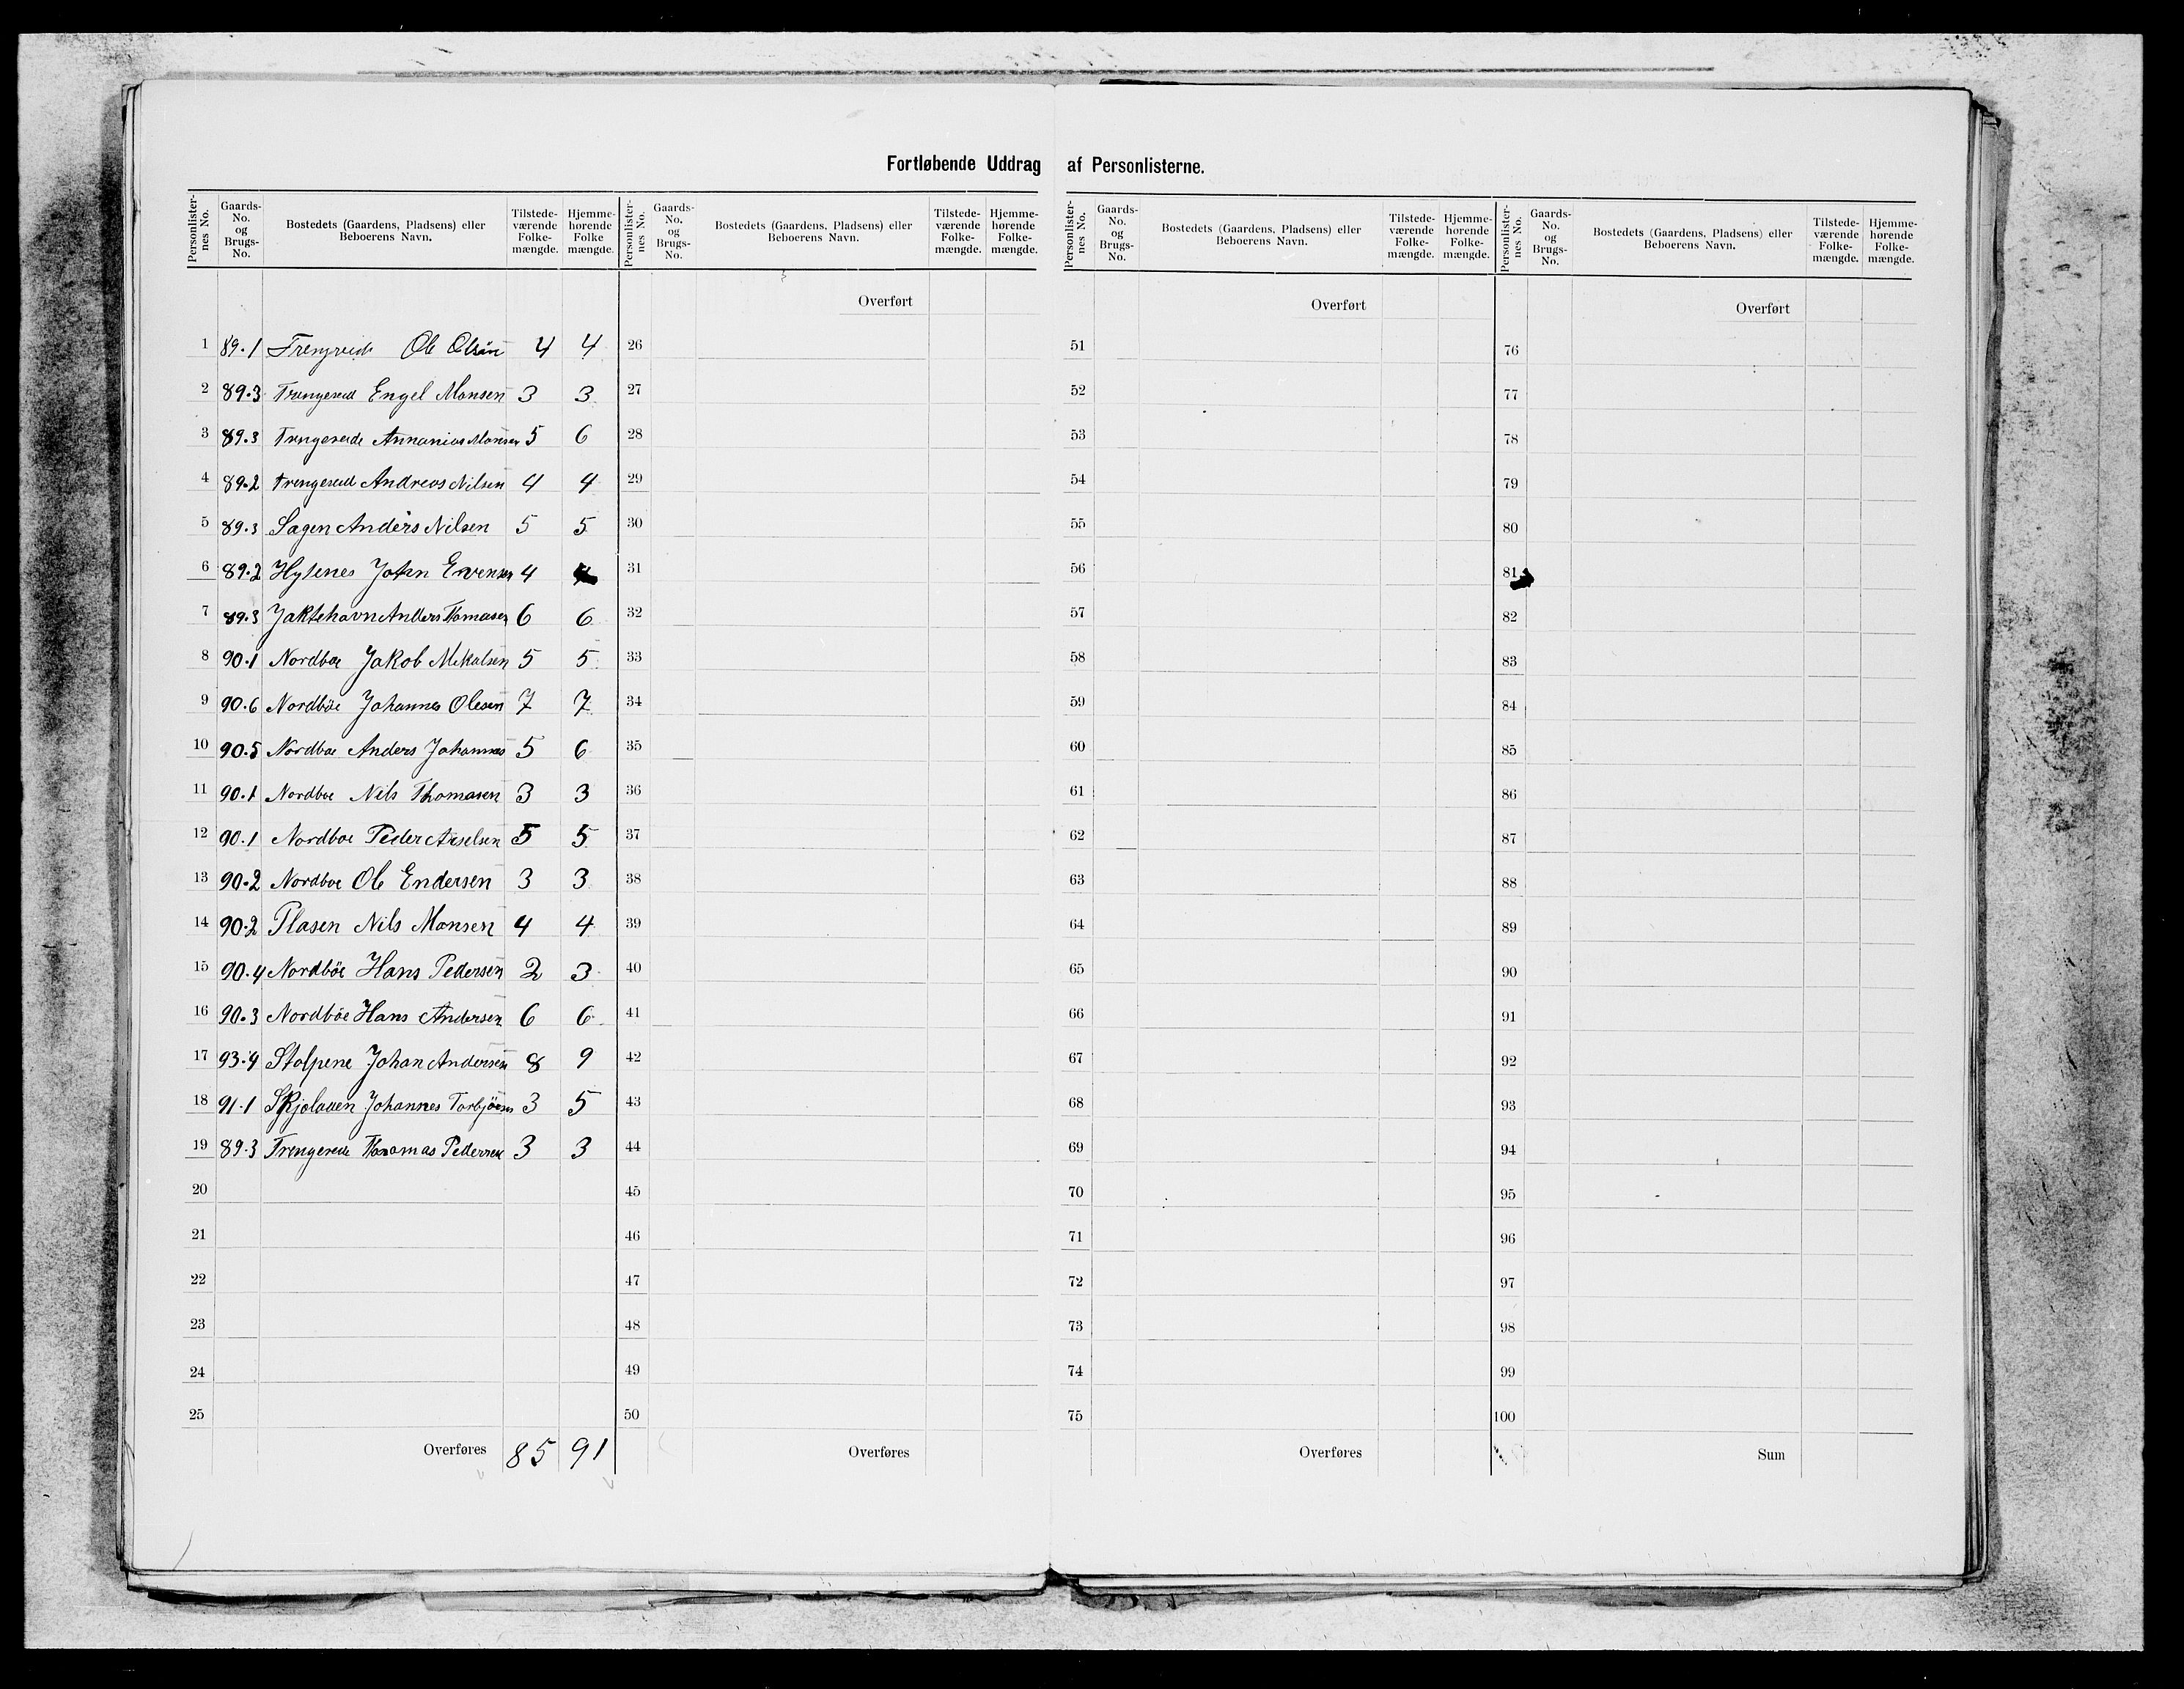 Fortløbende Uddrag af Personlisterne.
Personlister-nes No. Gaards-No. og Brugs-No. Bostedets (Gaardens, Pladsens) eller Beboerens Navn. Tilstede-værende Folke-mængde. Hjemme-hørende Folke mængde. Personlister-nes No. Gaards-No. og Brugs-No. Bostedets (Gaardens, Pladsens) eller Beboerens Navn. Tilstede-værende Folke-mængde. Hjemme-hørende Folke-mængde. Personlister-nes No. Gaards-No. og Brugs-No. Bostedets (Gaardens, Pladsens) eller Beboerens Navn. Tilstede-værende Folke-mængde. Hjemme-hørende Folke-mængde. Personlister-nes No. Gaards-No. og Brugs-No. Bostedets (Gaardens, Pladsens) eller Beboerens Navn. Tilstede-værende Folke-mængde. Hjemme-hørende Folke-mængde.
Overført Overført Overført
1 89.1 Ole Olsøn 4 4 26 51 76
2 89.3 Trengereid Engel Monsen 3 3 27 52 77
3 89.3 Trengereide Annanias Monsen 5 6 28 53 78
4 89.2 Trengereid Andreas Nilsen 4 4 29 54 79
5 89.3 Sagen Anders Nilsen 5 5 30 55 80
6 89.2 Hylenes John Evensen 4 31 56 81
7 89.3 Jaktehavn Anders Thomasen 6 6 32 57 82
8 90.1 Nordboe Jakob Mikalsen 5 5 33 58 83
9 90.6 Nordböe Johannes Olesen 7 7 34 59 84
10 90.5 Nordboe Anders Johannes 5 6 35 60 85
11 90.1 Nordboe Nils Thomasen 3 3 36 61 86
12 90.1 Nordboe Peder Axselsen 5 5 37 62 87
13 90.2 Nordboe Ole Endersen 3 3 38 63 88
14 90.2 Plasen Nils Monsen 4 4 39 64 89
15 90.4 Nordböe Hans Pedersen 2 3 40 65 90
16 90.3 Nordböe Hans Andersen 6 6 41 66 91
17 93.4 Stolpene Johan Andersen 8 9 42 67 92
18 91.1 Skjelaaen Johannes 3 5 43 68 93
19 89.3 Thomas Pedersen 3 3 44 69 94
20 45 70 95
21 46 71 96
22 47 72 97
23 48 73 98
24 49 74 99
25 50 75 100
Overføres 85 91 Overføres Overføres Sum